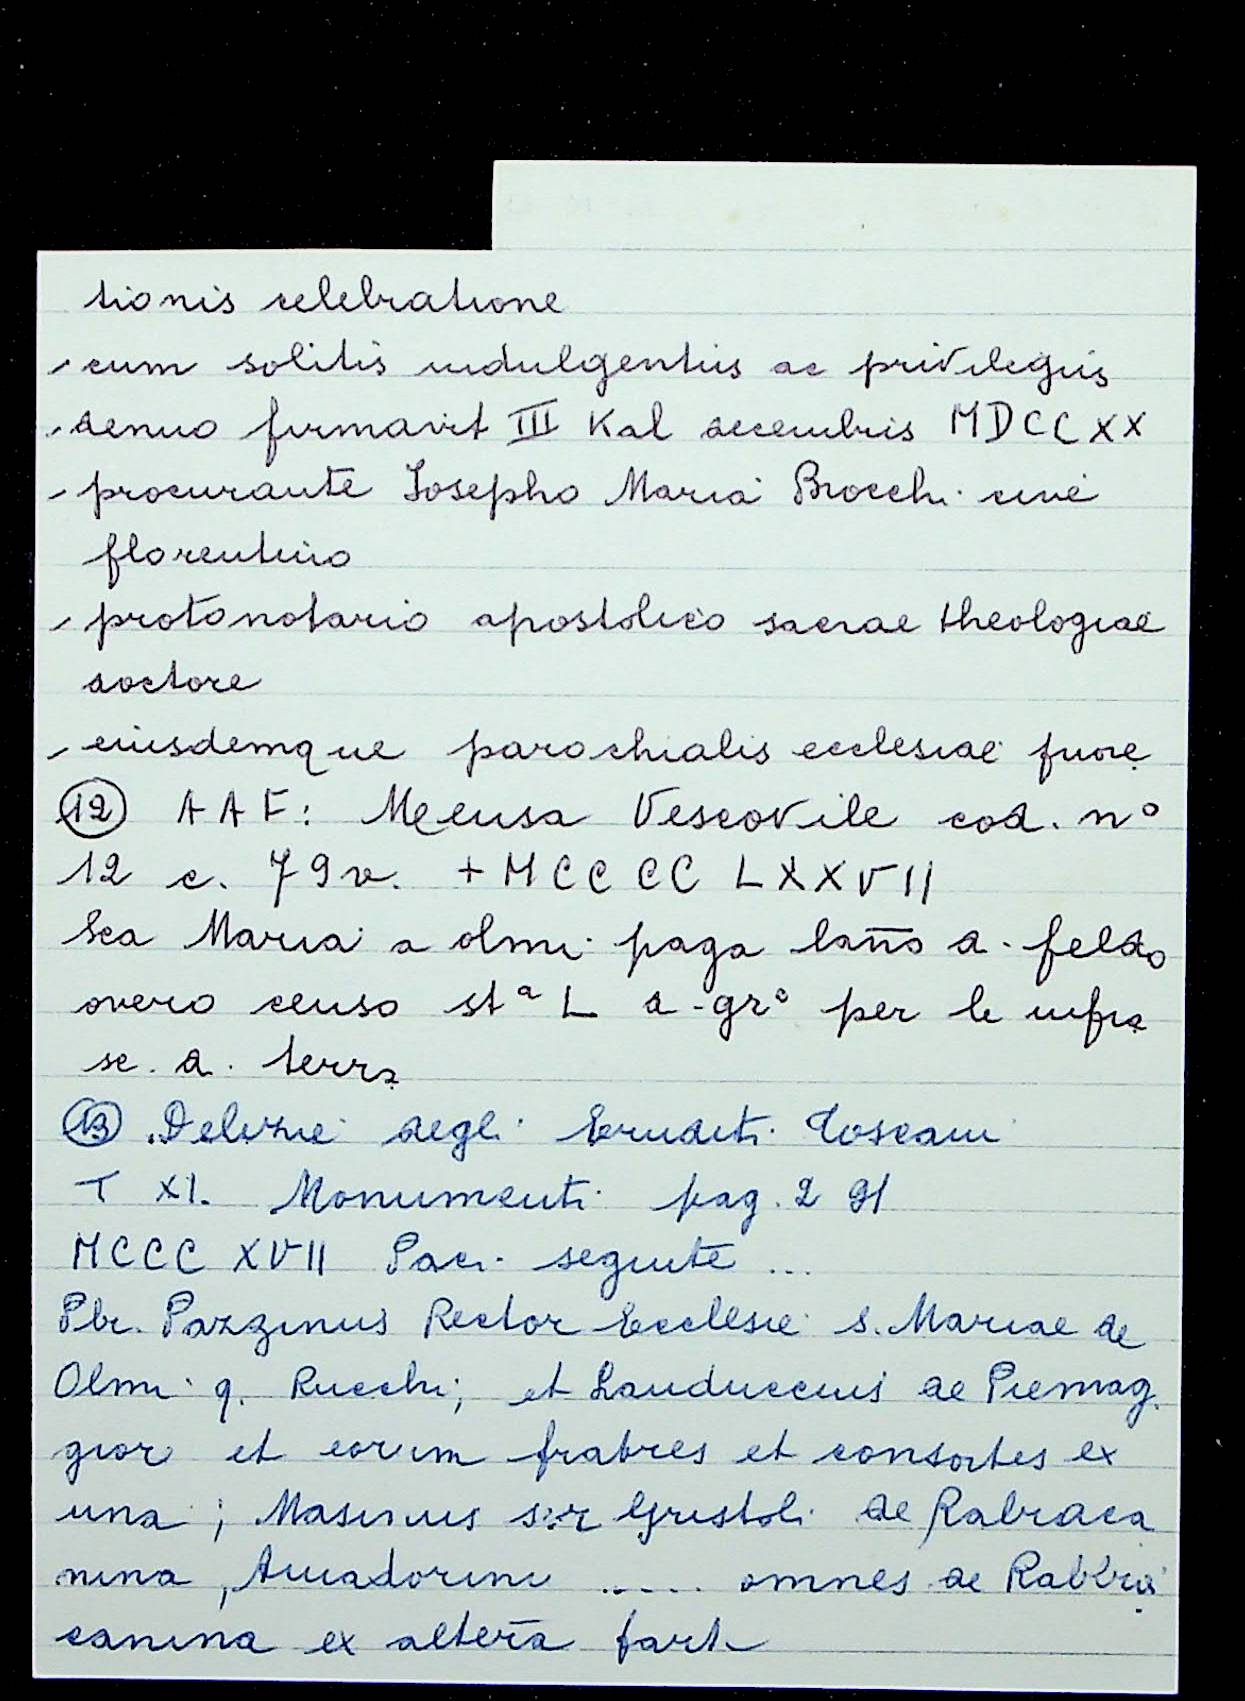 tionis celebratione
cum solitis indulgentiis ac privilegiis
denuo firmavit III Kal decembris MDCCXX
procurante Iosepho Maria Brocchi cive
florentino
protonotario apostolico sacrae theologiae
doctore
eiusdemque parochialis ecclesiae
12 AAF: Mensa Vescovile cod. n°
12 c. 79v. + MCCCCLXXVII
Sca Maria a olmi paga lano d.
overo censo stª L d-grº per le infra
sc. d. terra
13 Delizie degli Eruditi Toscani
T XI. Monumenti pag. 291
MCCCXVII Paci seguite ...
Pbr. Pazzinus Rector Ecclesie S. Mariae de
Olmi q. Rucchi; et Landuccius de Piemag
gior et eorum fratres et consortes ex
una; Masinus ser Gristoli de Rabraca
nina, Amadorini ..... omnes de Rabbra
canina ex altera parte